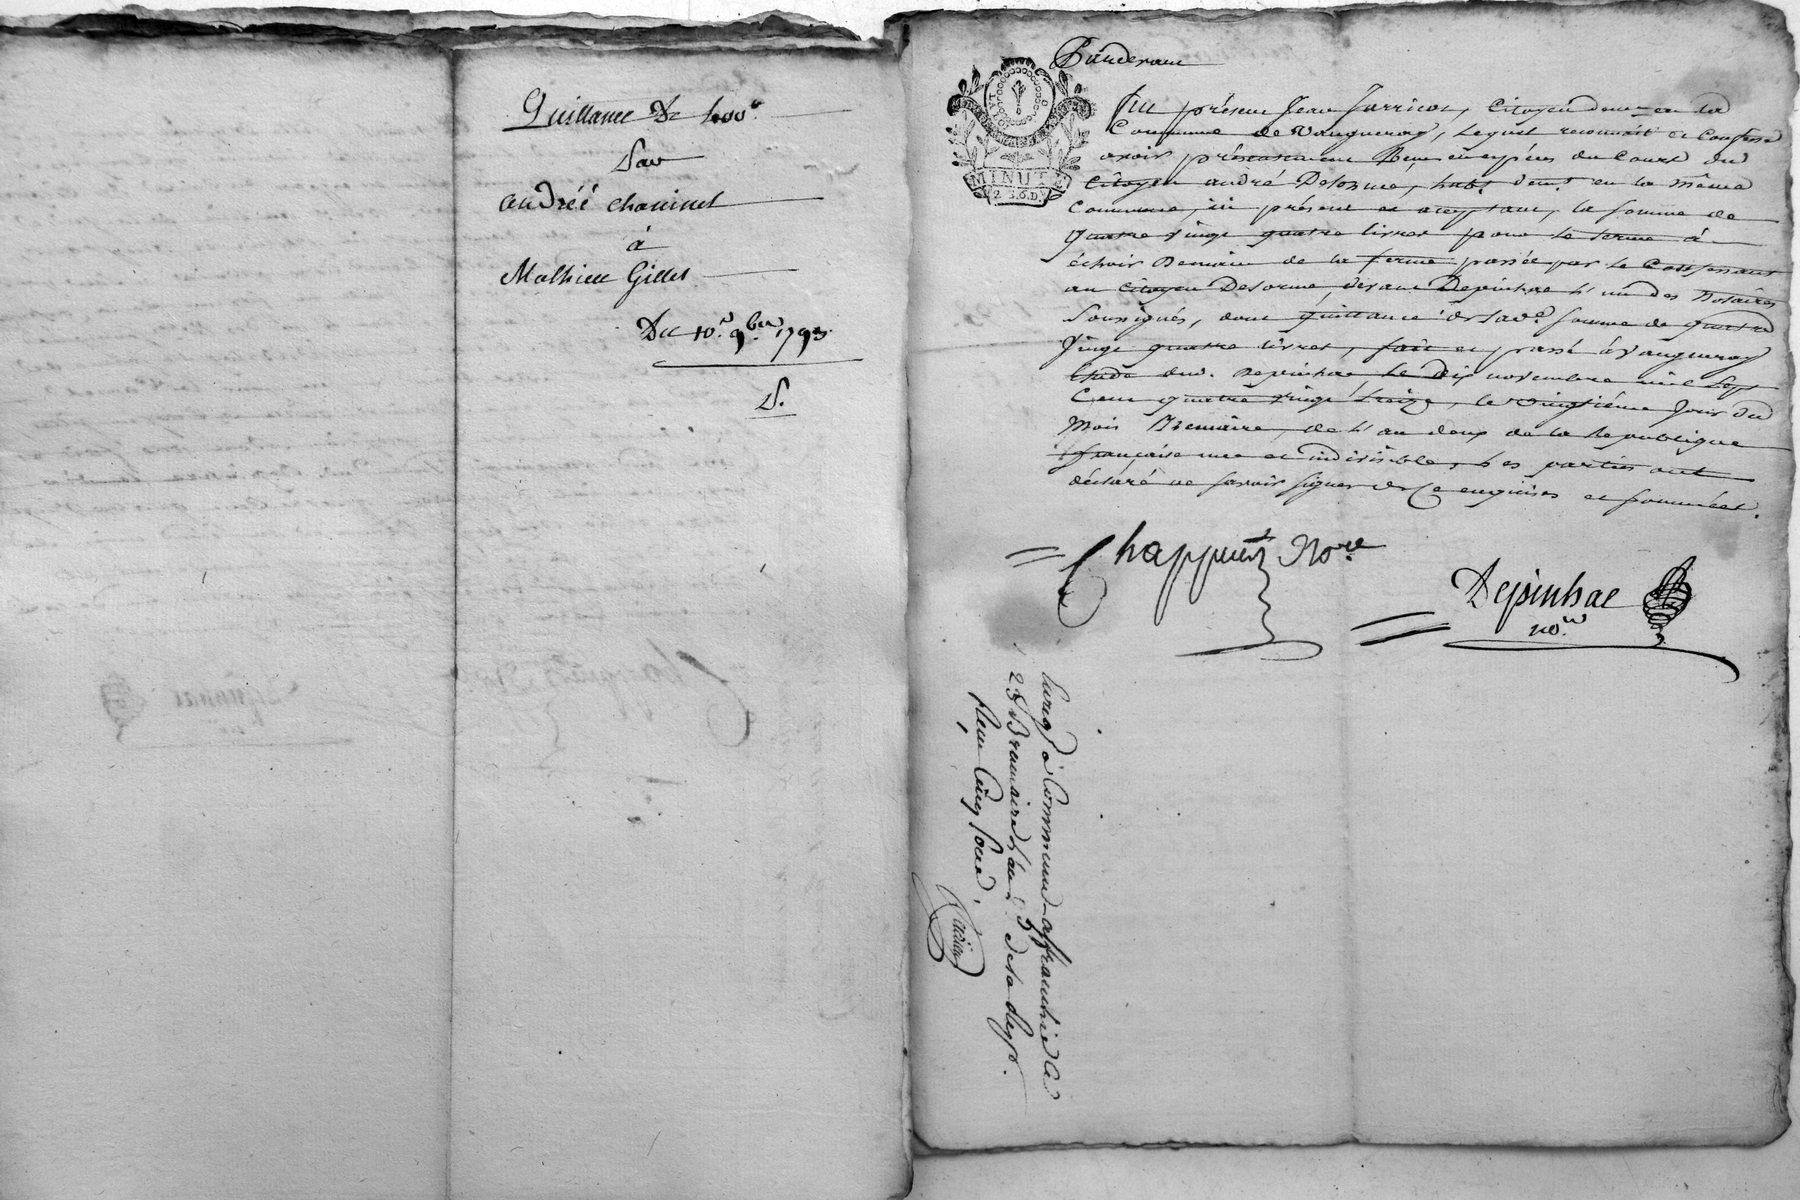 Quittance De 400#
Par
andréé chaninel
à
Mathieu Gillet
Du 10e. 9bre 1793.
MINUTE
Pardevant
fut présent Jean Jarricot, Citoyen demt en la
Commune de Vaugneray, Lequel reconnoit et Confesse
avoir présentement Reçu en espèces du Court du
Citoyen andré Delorme, habt. demt. en la même
Commune, ici présent et acceptant, la somme de
quatre vingt quatre livres pour le terme à
échoir Demain de la ferme passée par le Confessant
au Citoyen Delorme, devant Depinhac l'un des Notaires
Soussignés, dont quittance de lade. somme de quatre
Vingt quatre livres, fait et passé à Vaugneray
Etude dud. Depinhac le dix novembre mil Sept
Cent quatre vingt treize, le vingtième jour du
Mois Brumaire, de l'an deux de la Republique
française une et indivisible, Les parties ont
déclaré ne savoir signer de ce enquises et sommées.
Chappuis Nore
Depinhac
nore
Enregé à Commune-affranchie le
25 Brumaire l'an 2 de la Repe.
Reçu Cinq sous